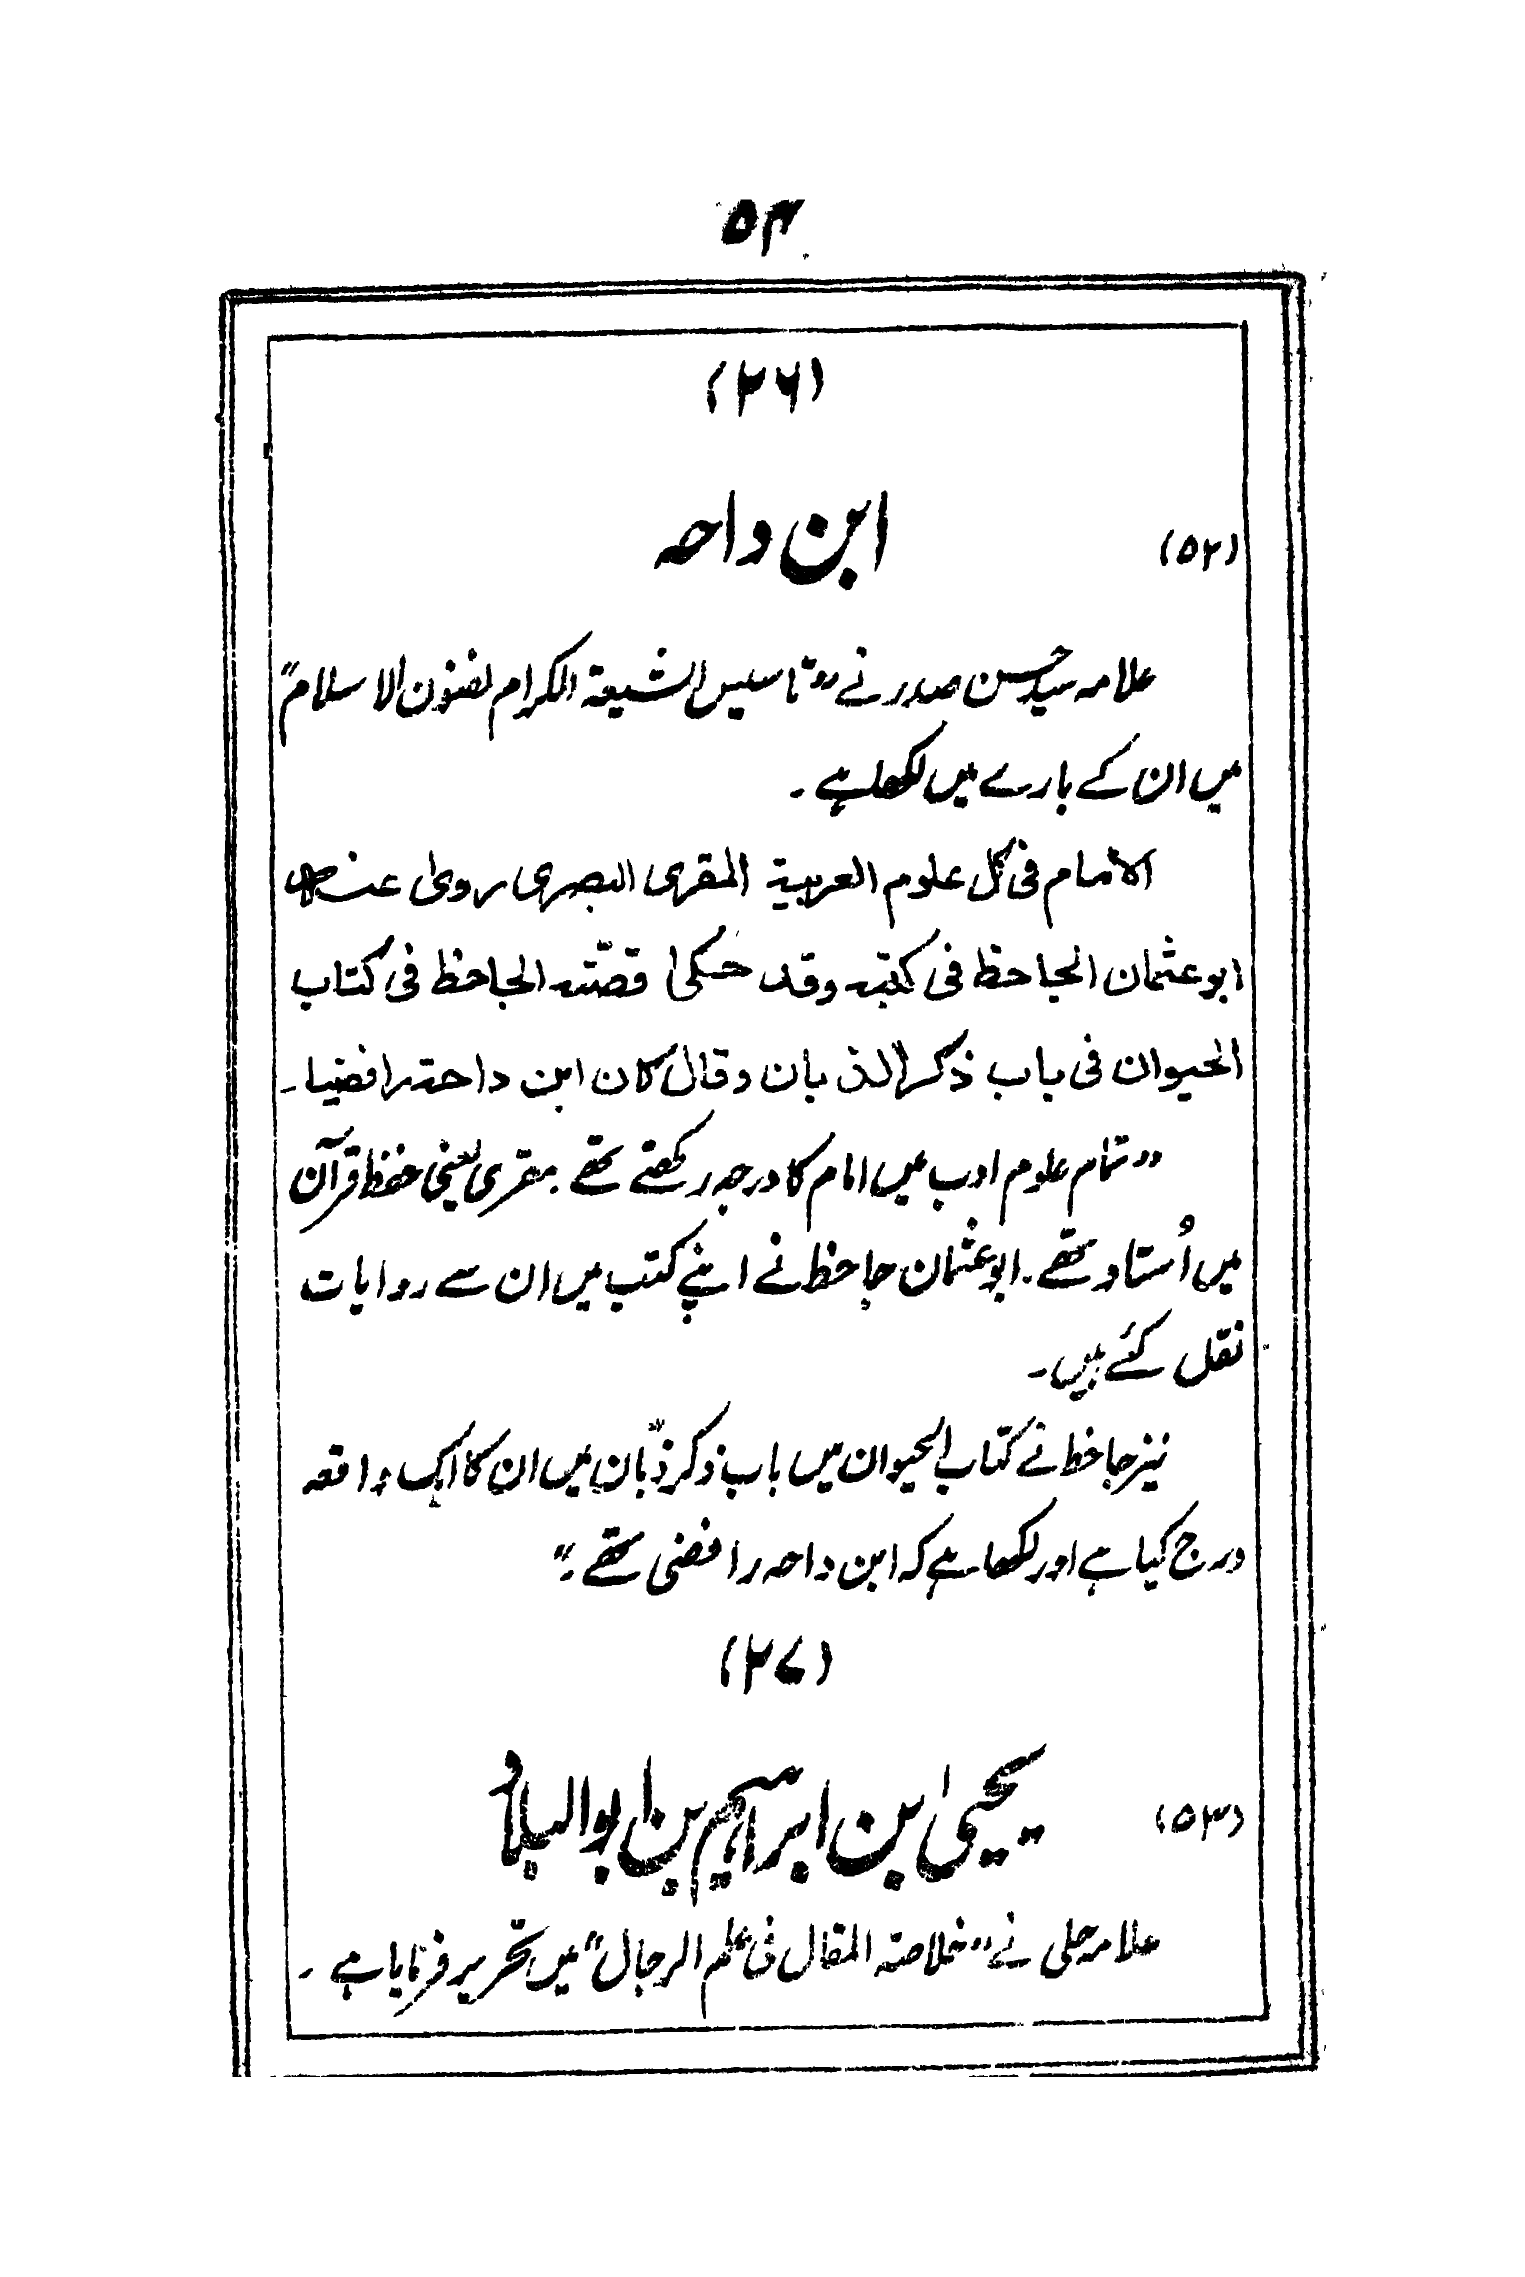 ۵۴
(۲۶)
(۵۲) ابن داحہ
علامہ سید حسن صدر نے ”تاسیس الشیعۃ الکرام لفنون الاسلام“
میں ان کے بارے میں لکھا ہے ۔
الامام فی کل علوم العربیۃ المقری البصری روی عنہ
ابو عثمان الجاحظ فی کتبہ وقد حکیٰ قصّتہ الجاحظ فی کتاب
الحیوان فی باب ذکر الذبان وقال کان ابن داحۃ رافضیا ۔
”تمام علوم ادب میں امام کا درجہ رکھتے تھے ۔ مقری یعنی حفظ قرآن
میں اُستاد تھے ۔ ابو عثمان جاحظ نے اپنے کتب میں ان سے روایات
نقل کئے ہیں ۔
نیز جاخط نے کتاب الحیوان میں باب ذکر ذبّان میں ان کا ایک واقعہ
درج کیا ہے اور لکھا ہے کہ ابن داحہ رافضی تھے ۔“
(۲۷)
(۵۳) یحییٰ ابن ابراہیم بن ابو البلاد
علامہ حلی نے ”خلاصتہ المقال فی علم الرجال“ میں تحریر فرمایا ہے ۔